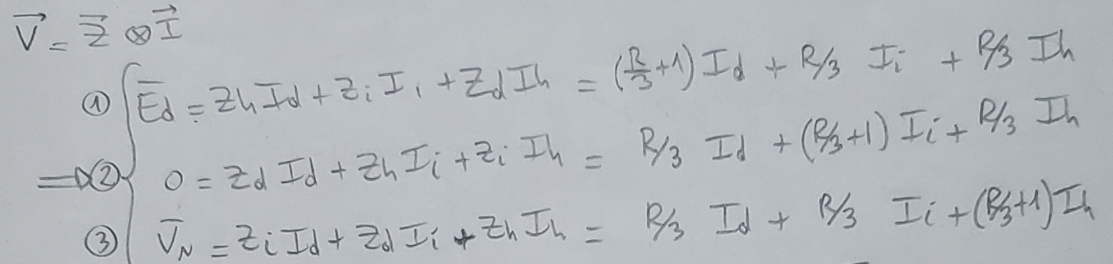 V⃗ = Z⃗ ⊗ I⃗
① { E̅d = Zh Id + Zi Ii + Zd Ih = (R/3+1) Id + R/3 Ii + R/3 Ih
⇒ ② { 0 = Zd Id + Zh Ii + Zi Ih = R/3 Id + (R/3+1) Ii + R/3 Ih
③ { V̅N = Zi Id + Zd Ii + Zh Ih = R/3 Id + R/3 Ii + (R/3+1) Ih